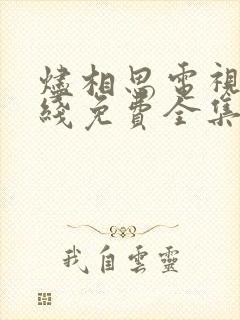 燼相思電視
綫免費全集
我自雲靈